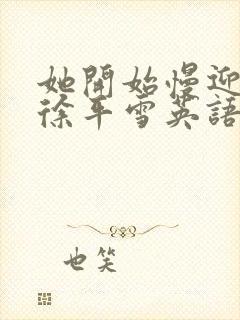 她開始慢迎
徐平雪英語
也笑